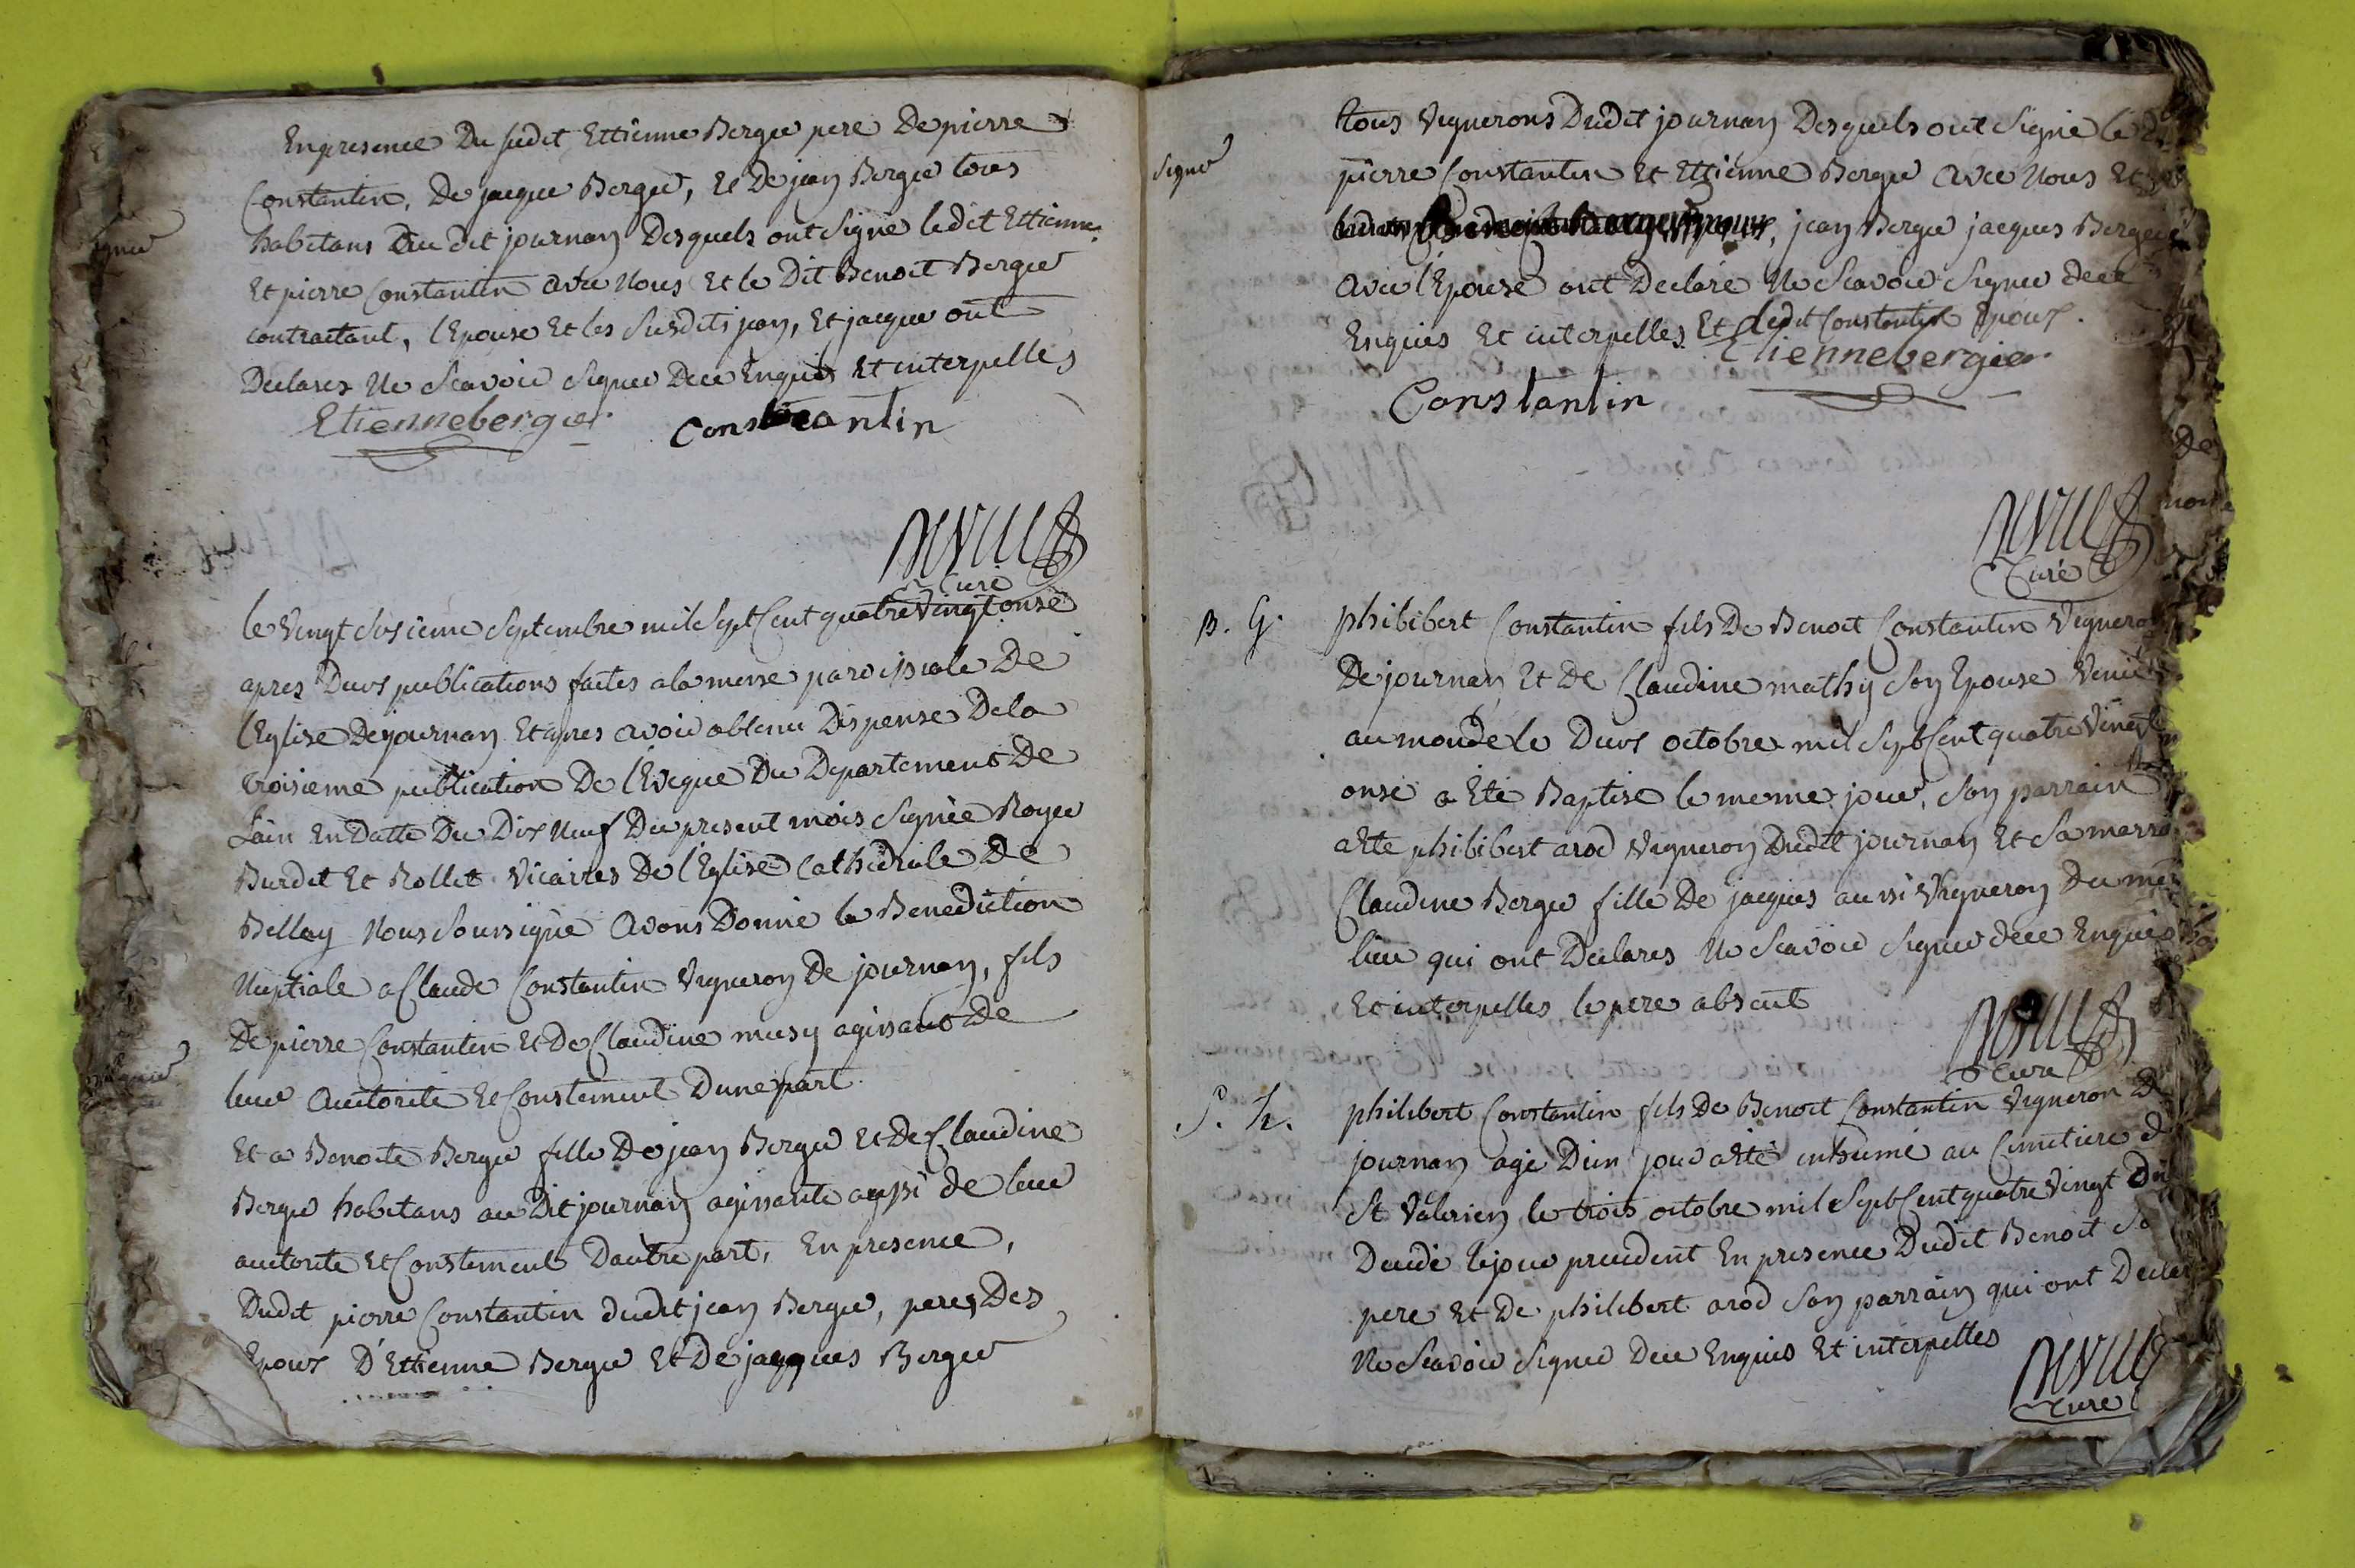 En presence Du sudit Ettienne Berger pere De pierre
Constantin, De jacque Berger, Et De jean Berger tous
habitans Du dit journan Desquels ont Signé ledit Ettienne
Et pierre Constantin avec Nous Et le Dit Benoit Berger
contractant, l'Epouse Et les Susdits jean, Et jacque ont
Declarés Ne Scavoir Signer Dece Enquis Et interpellés
Etiennebergier
Constantin
Curé
le Vingt Sixieme Septembre mil Sept Cent quatre Vingt onse
apres Deux publications faites a la messe paroissiale De
l'Eglise De journan Et apres avoir obtenu Dispense De la
troisieme publication De l'Eveque Du Departement De
L'ain En Datte Du Dix Neuf Du present mois Signée Royer
Burdet Et Rollet Vicaires De l'Eglise Cathedrale De
Belley Nous Soussigné Avons Donné la Benediction
Nuptiale a Claude Constantin Vigneron De journan, fils
De pierre Constantin Et De Claudine musy agissant De
leur Autorité Et Constement Dune part
Et a Benoite Berger fille De jean Berger Et De Claudine
Berger habitans au Dit journan agissante aussi de leur
autorité Et Constement Dautre part, En presence,
Dudit pierre Constantin dudit jean Berger, peres Des
Epoux D'Ettienne Berger Et De jacques Berger
signer
tous Vignerons Dudit journan Desquels ont Signé le
pierre Constantin Et Ettienne Berger avec Nous Et
jean Berger jacques Berger
avec l'Epouse ont Declaré Ne Scavoir Signer dece
Enquis Et interpellés Et ledit Constantin Epoux.
Etiennebergier
Constantin
Curé
B. G. philibert Constantin fils De Benoit Constantin Vigneron
De journan Et De Claudine mathy Son Epouse Venu
au monde le Deux octobre mil Sept Cent quatre Vingt
onse a Eté Baptisé le meme jour, Son parrain
a Eté philibert arod Vigneron Dudit journan Et Sa marra
Claudine Berger fille De jacques aussi Vigneron Du meme
lieu qui ont Declarés Ne Scavoir Signer dece Enquis
Et interpellés le pere absent
Curé
S. h. philibert Constantin fils De Benoit Constantin Vigneron De
journan agé D'un jour a Eté inhumé au Cimetiere de
St Valerien le trois octobre mil Sept Cent quatre Vingt
Decedé le jour precedent En presence Dudit Benoit So
pere Et De philibert arod Son parrain qui ont Declar
Ne Scavoir Signer Dece Enquis Et interpellés
Curé